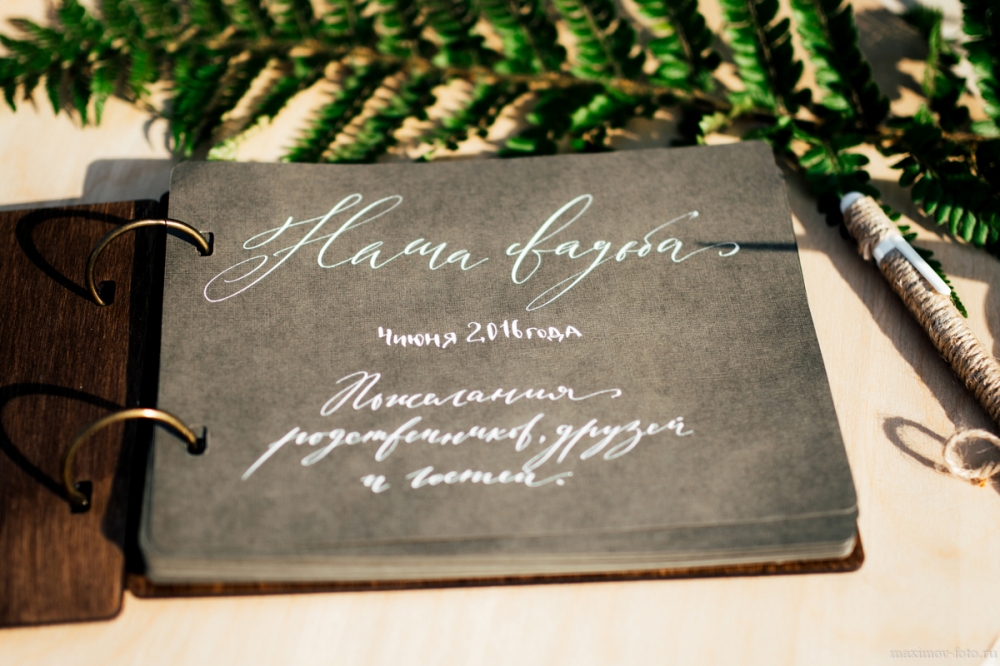 Наша свадьба
4 июня 2016 года
Пожелания
родственников, друзей
и гостей.
maximov-foto.ru